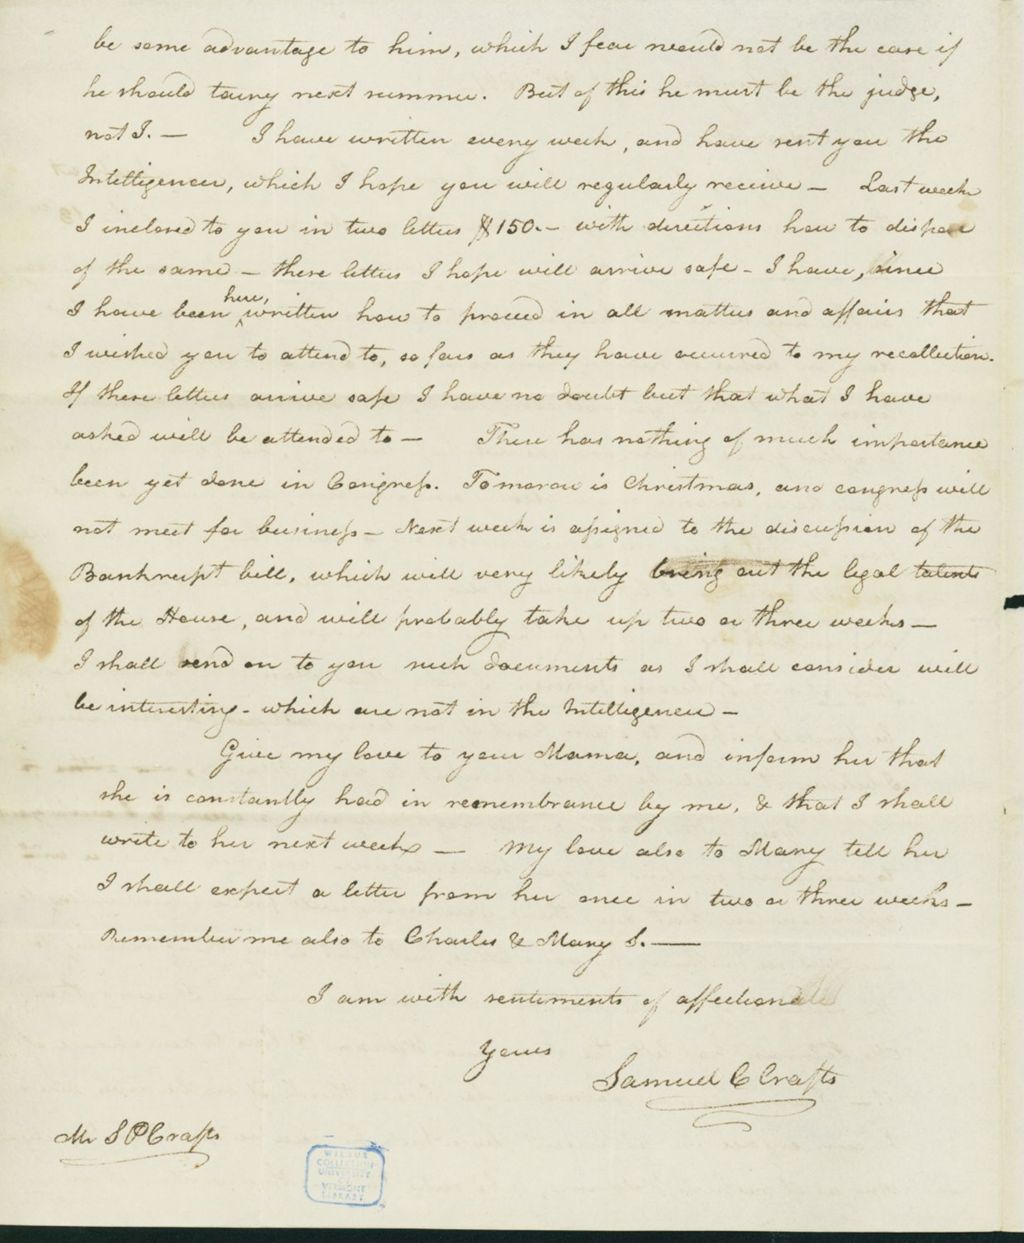 be some advantage to him, which I fear would not be the case if
he should tarry next summer. But of this he must be the judge,
not I. — I have written every week, and have sent you the
Intelligencer, which I hope you will regularly receive — Last week
I inclosed to you in two letters $150. — with directions how to dispose
of the same — these letters I hope will arrive safe — I have, since
I have been here, written how to proceed in all matters and affairs that
I wished you to attend to, so fair as they have occurred to my recollection.
If these letters arrive safe I have no doubt but that what I have
asked will be attended to — There has nothing of much importance
been yet done in Congress. Tomorow is Christmas, and congress will
not meet for business — Next week is assigned to the discussion of the
Bankrupt bill, which will very likely bring out the legal talents
of the House, and will probably take up two or three weeks —
I shall send on to you such documents as I shall consider will
be interesting — which are not in the Intelligencer —
Give my love to your Mama, and inform her that
she is constantly had in remembrance by me, & that I shall
write to her next week — My love also to Mary tell her
I shall expect a letter from her once in two or three weeks —
Remember me also to Charles & Mary S. —
I am with sentiments of affectionate
Yours
Samuel C Crafts
Mr S P Crafts
WILBUR
COLLECTION
UNIVERSITY
OF
VERMONT
LIBRARY